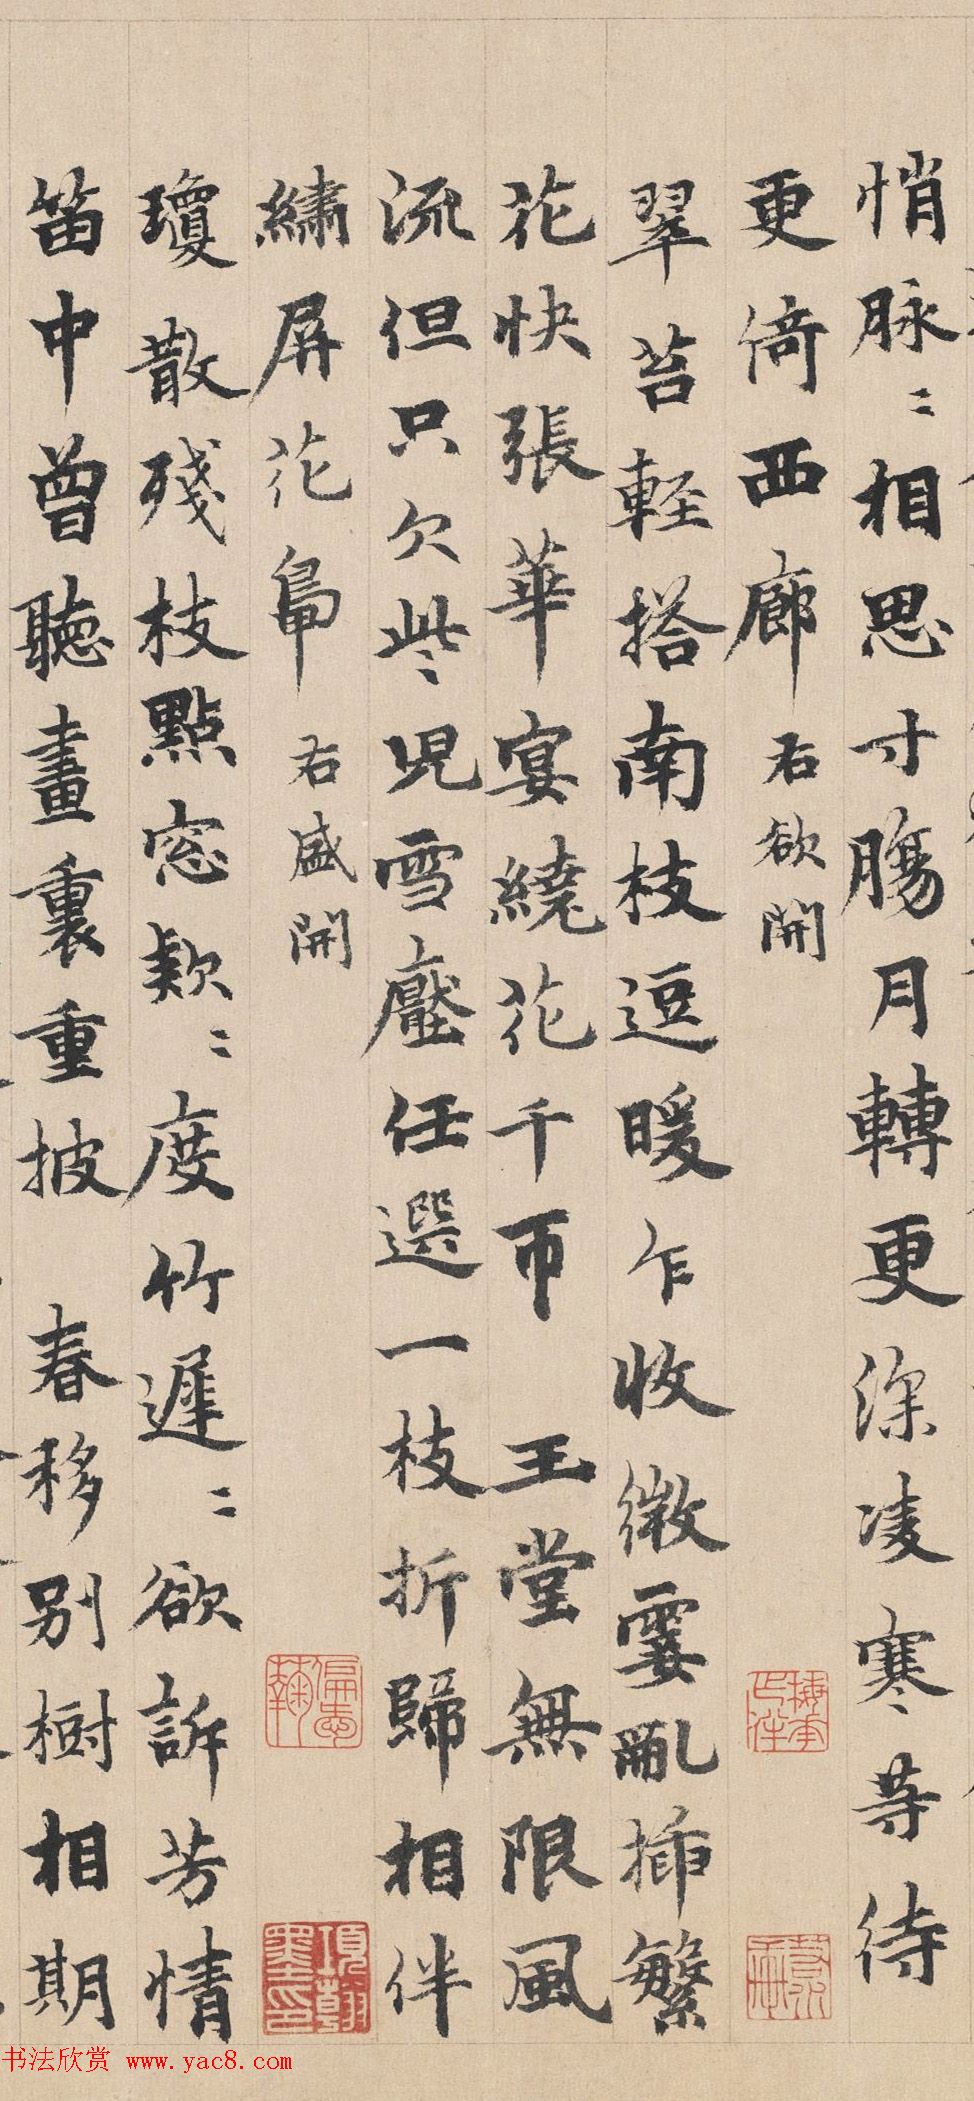 悄脉〻相思寸腸月轉更深凌寒等待
更倚西廊 右欲開
翠苔輕搭南枝逗暖乍收微霎亂揷繁
花快張華宴繞花千帀 玉堂無限風
流但只欠些〻兒雪壓任選一枝折歸相伴
繡屏花鳥 右盛開
瓊散殘枝點窓款〻度竹遲〻欲訴芳情
笛中曾聽畫裏重披 春移别樹相期
書法欣赏 www.yac8.com